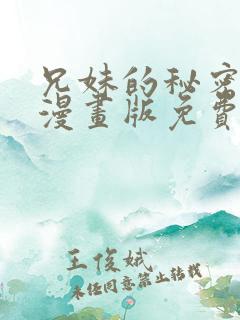 兄妹的秘密
漫畫版免費
王俊娥
未經同意禁止轉載